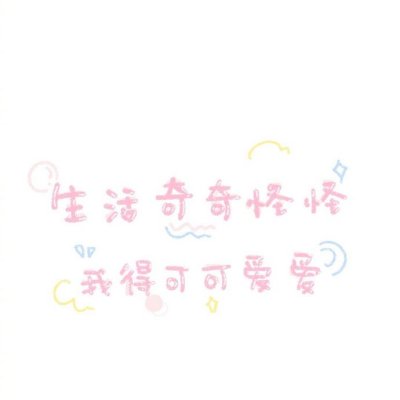 生活奇奇怪怪
我得可可爱爱